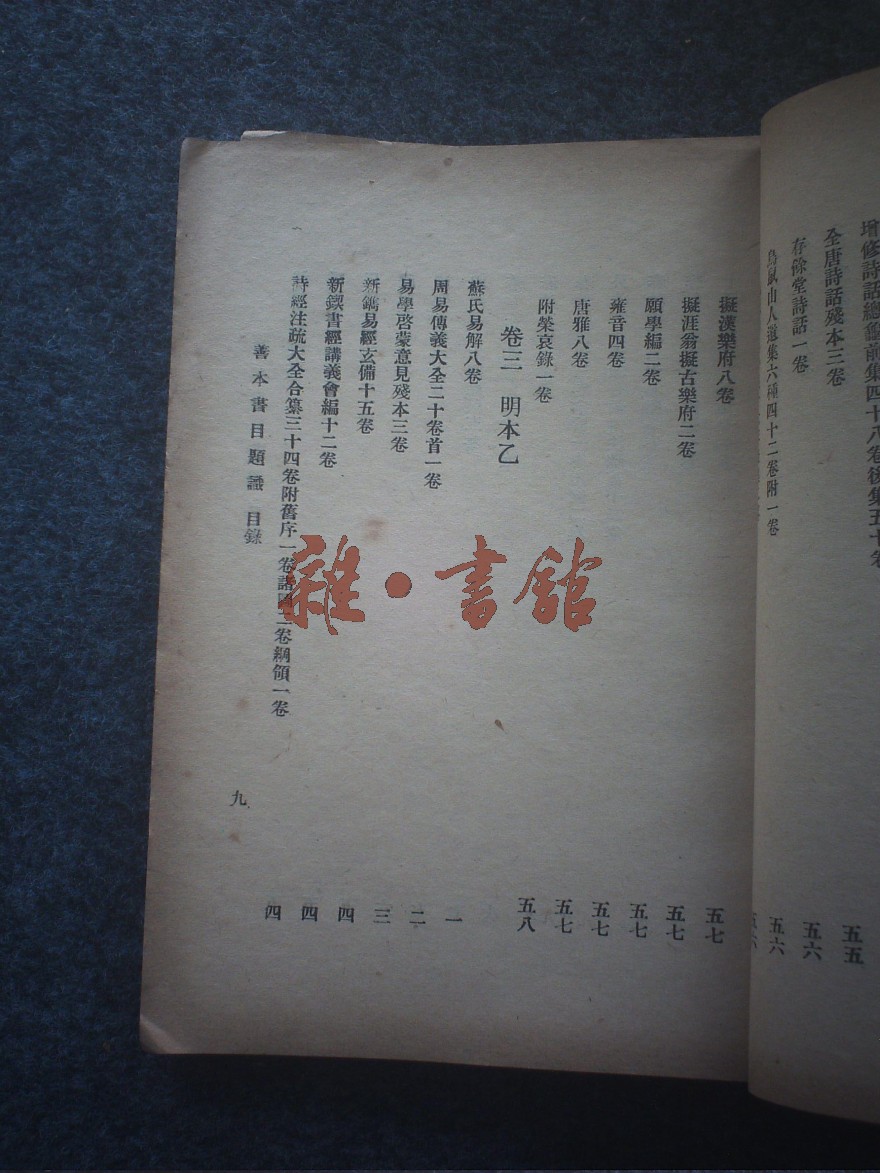 增修詩話總龜前集四十八卷後集五十卷
全唐詩話殘本三卷 五五
存餘堂詩話一卷 五六
鳥鼠山人遺集六種四十二卷附一卷 五六
擬漢樂府八卷 五七
擬涯翁擬古樂府二卷 五七
願學編二卷 五七
雍音四卷 五七
唐雅八卷 五七
附榮哀錄一卷 五八
卷三 明本乙
蘇氏易解八卷 一
周易傳義大全二十卷首一卷 二
易學啓蒙意見殘本三卷 三
新鐫易經玄備十五卷 四
新鍥書經講義會編十二卷 四
詩經注疏大全合纂三十四卷附舊序一卷諸國二卷綱領一卷 四
善本書目題識 目錄
九
雜·書舘